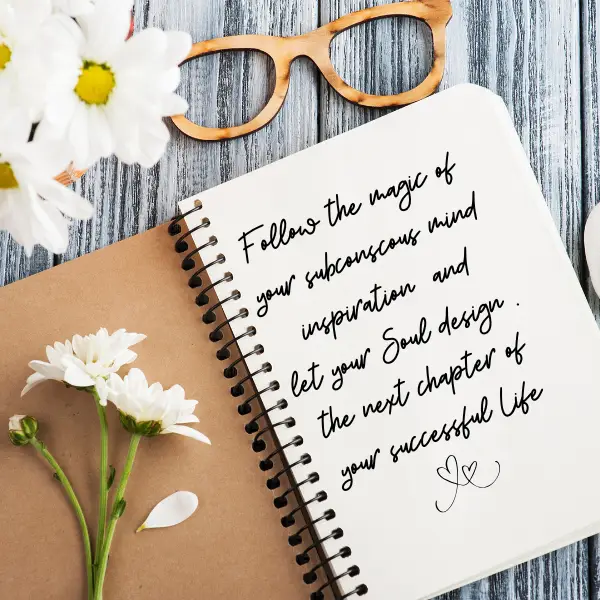 Follow the magic of
your subconscous mind
inspiration and
let your Soul design .
the next chapter of
your successful Life